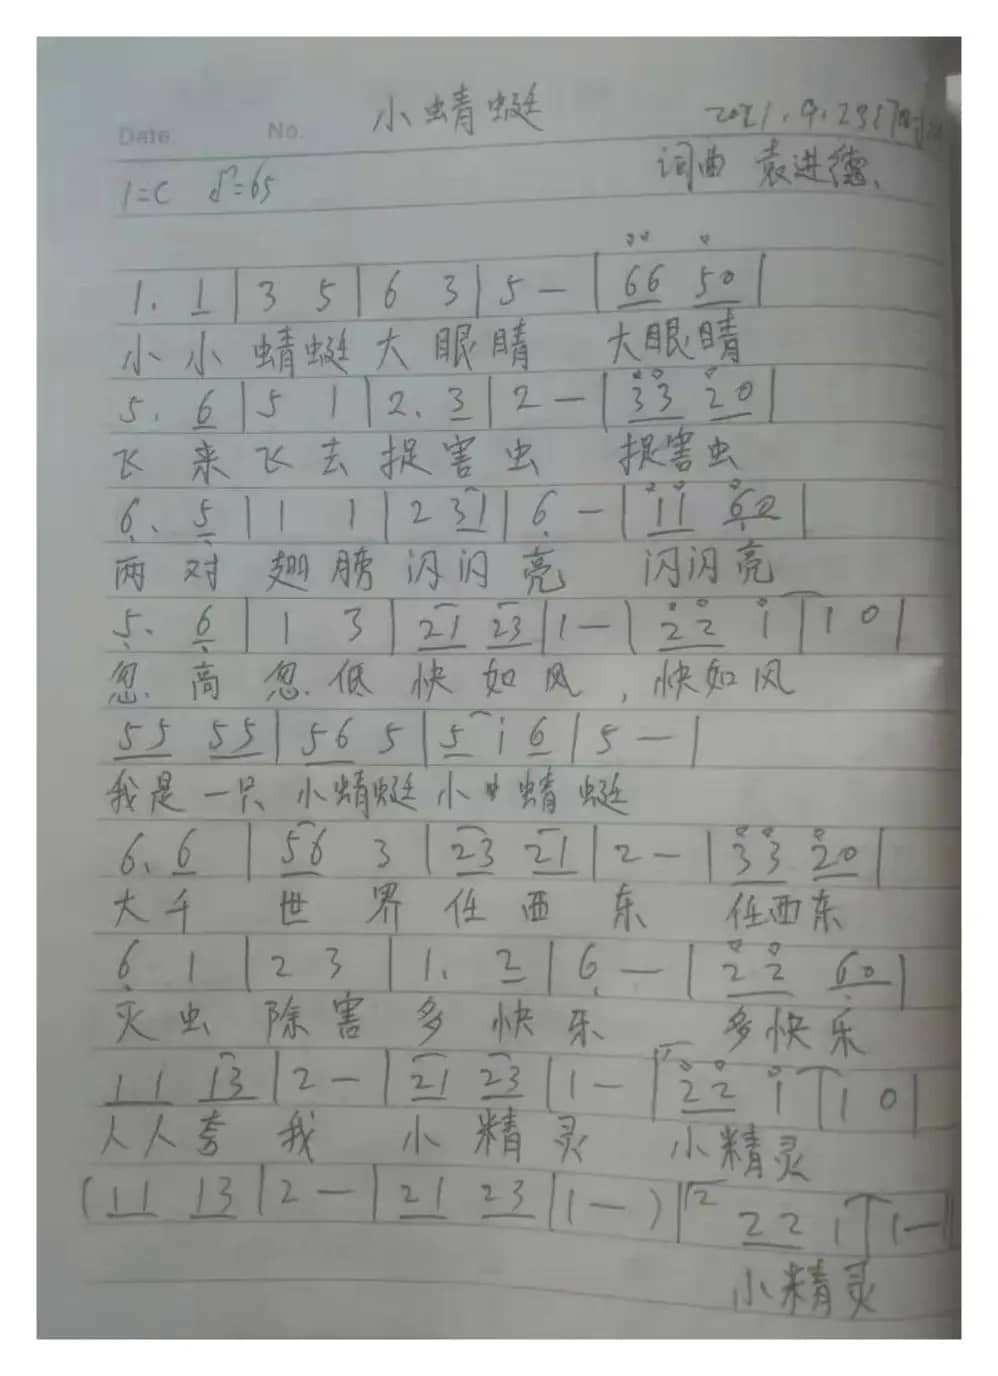 小蜻蜓
Date No. 2021.9.23
词曲 袁进德、
1=C ♩=65
1. 1 | 3 5 | 6 3 | 5 — | 66 50 |
小小蜻蜓大眼睛 大眼睛
5. 6 | 5 1 | 2. 3 | 2 — | 33 20 |
飞来飞去捉害虫 捉害虫
6. 5 | 1 1 | 2 31 | 6 — | 11 60 |
两对翅膀闪闪亮 闪闪亮
5. 6 | 1 3 | 21 23 | 1 — | 22 1 | 1 0 |
忽高忽低快如风,快如风
55 55 | 56 5 | 5 i 6 | 5 — |
我是一只小蜻蜓小蜻蜓
6. 6 | 56 3 | 23 21 | 2 — | 33 20 |
大千世界任西东 任西东
6 1 | 2 3 | 1. 2 | 6 — | 22 60 |
灭虫除害多快乐 多快乐
11 13 | 2 — | 21 23 | 1 — | 22 1 | 1 0 |
人人夸我小精灵 小精灵
( 11 13 | 2 — | 21 23 | 1 — ) | 2 22 1 | 1 — ||
小精灵